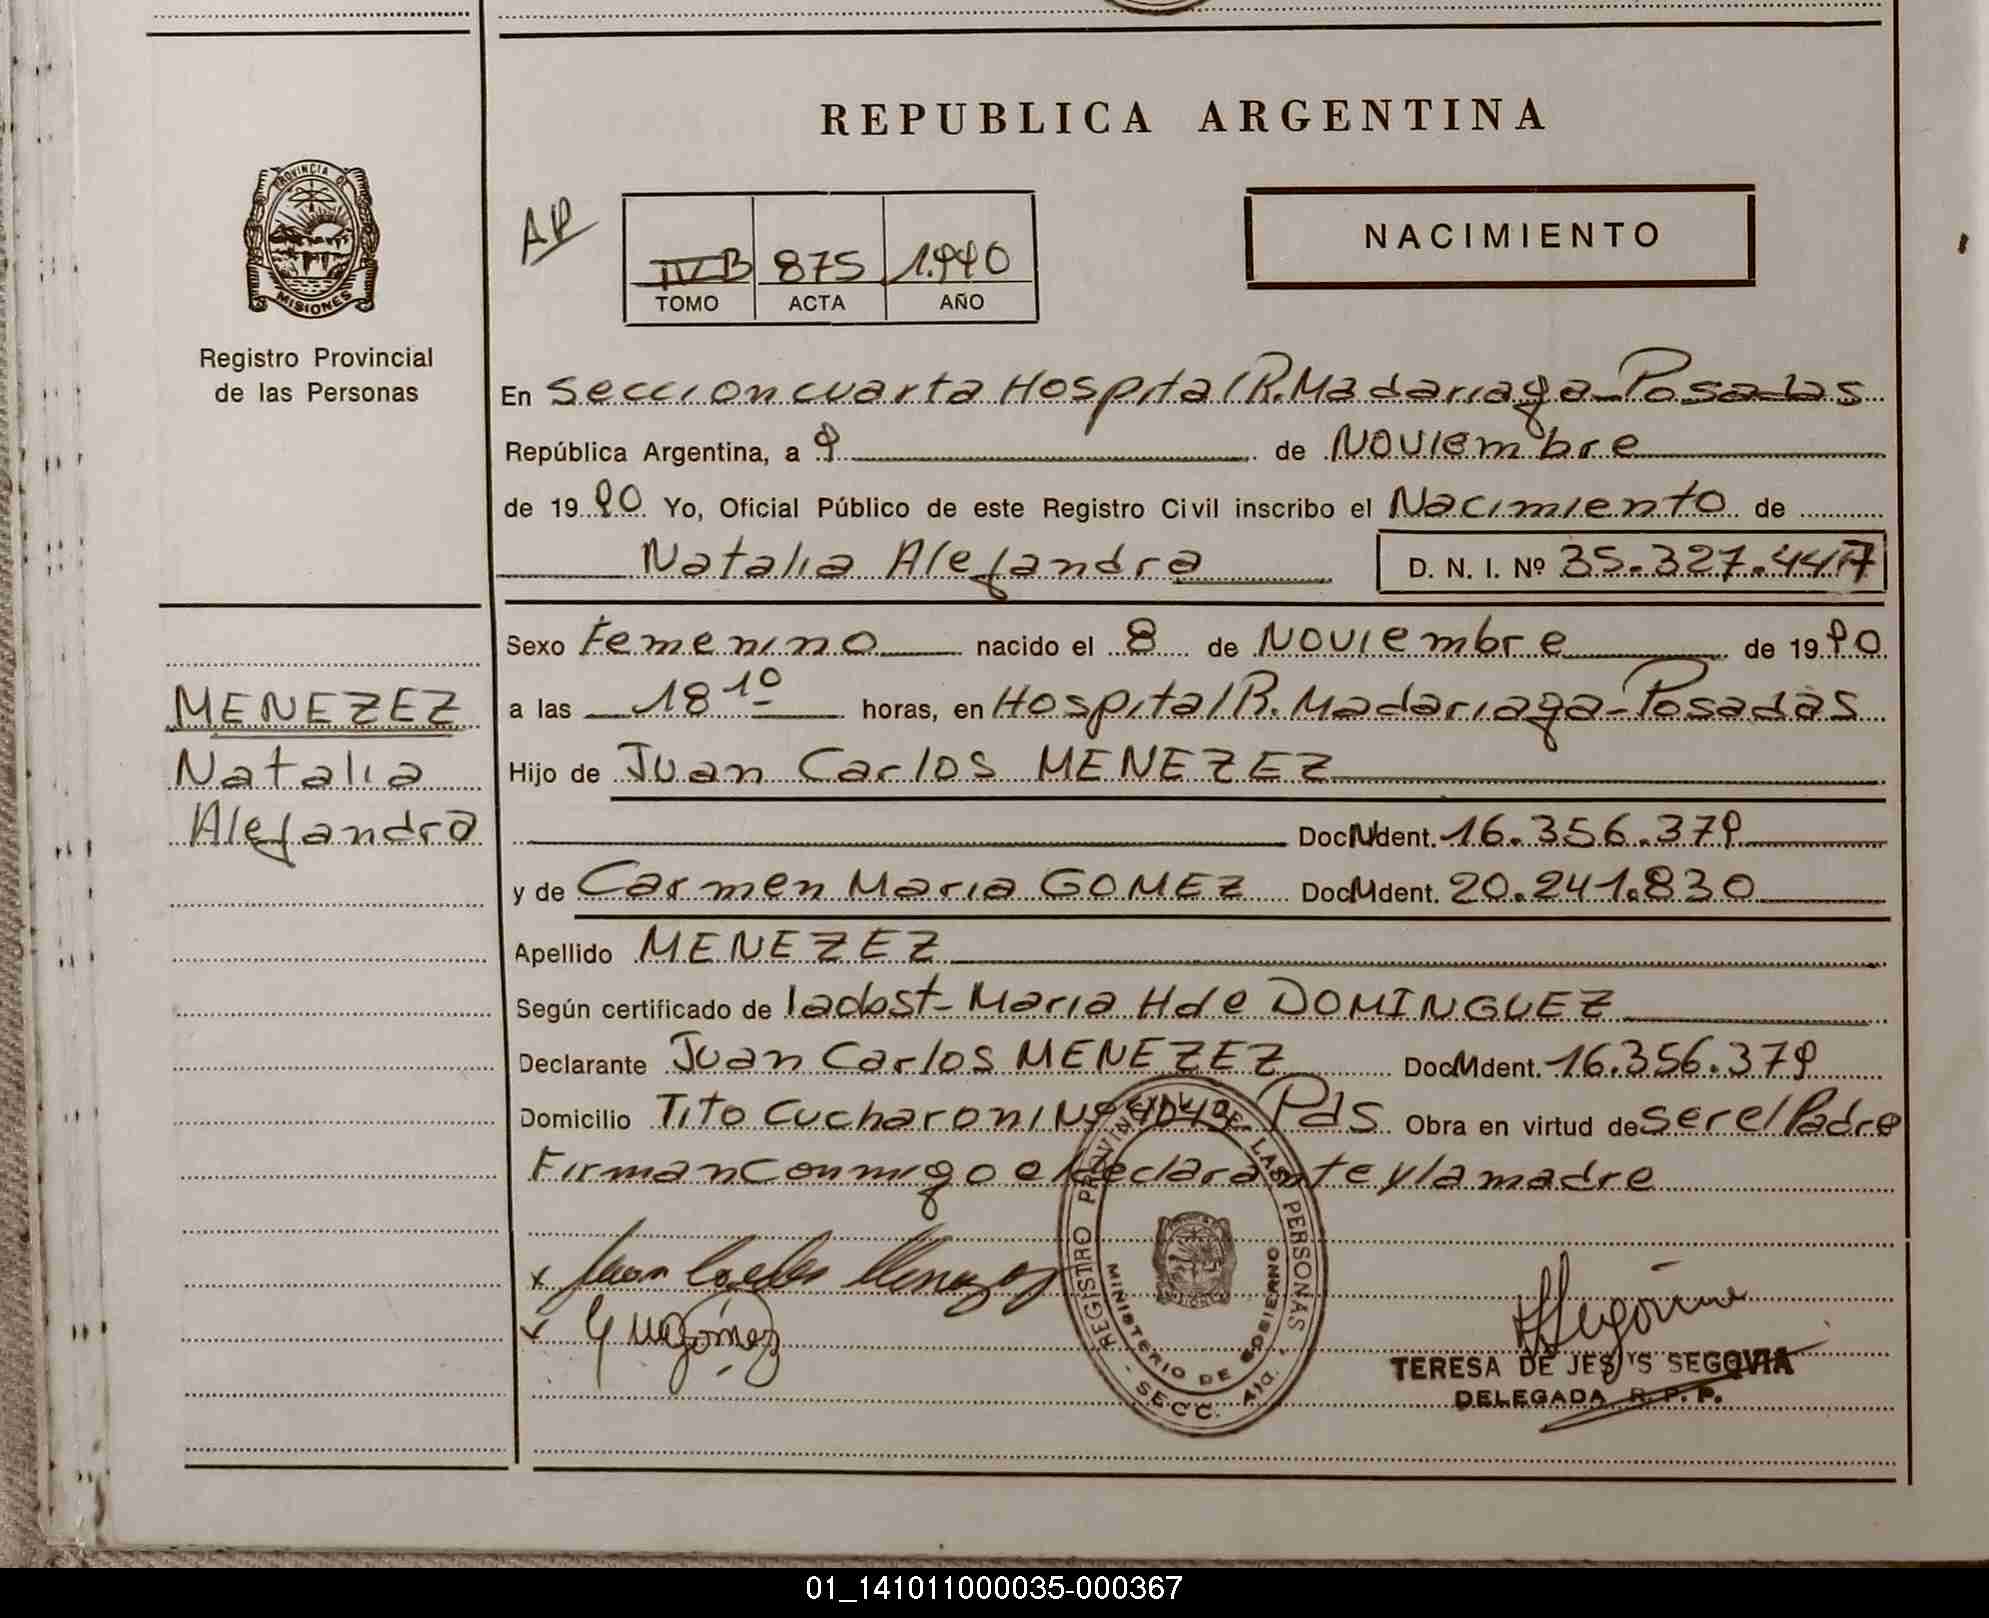 REPUBLICA ARGENTINA
PROVINCIA DE
MISIONES
Registro Provincial
de las Personas
AR
IV B 875 1.990
TOMO ACTA AÑO
NACIMIENTO
En Seccion cuarta Hospital R. Madariaga - Posadas
República Argentina, a 9 de Noviembre
de 1990 Yo, Oficial Público de este Registro Civil inscribo el Nacimiento de
Natalia Alejandra D. N. I. Nº 35.327.447
Sexo Femenino nacido el 8 de Noviembre de 1990
a las 18 10 horas, en Hospital R. Madariaga - Posadas
MENEZEZ
Natalia
Alejandra
Hijo de Juan Carlos MENEZEZ
Doc N Ident. 16.356.379
y de Carmen Maria GOMEZ Doc M Ident. 20.241.830
Apellido MENEZEZ
Según certificado de la obst- Maria H de DOMINGUEZ
Declarante Juan Carlos MENEZEZ Doc M Ident. 16.356.379
Domicilio Tito Cucharoni Nº 4049 Pds Obra en virtud de ser el Padre
Firman conmigo el declarante y la madre
x Juan Carlos Menezez
Gomez
REGISTRO PROVINCIAL DE LAS PERSONAS
MINISTERIO DE GOBIERNO
- SECC. 4ta. -
TERESA DE JESUS SEGOVIA
DELEGADA R. P. P.
01_141011000035-000367